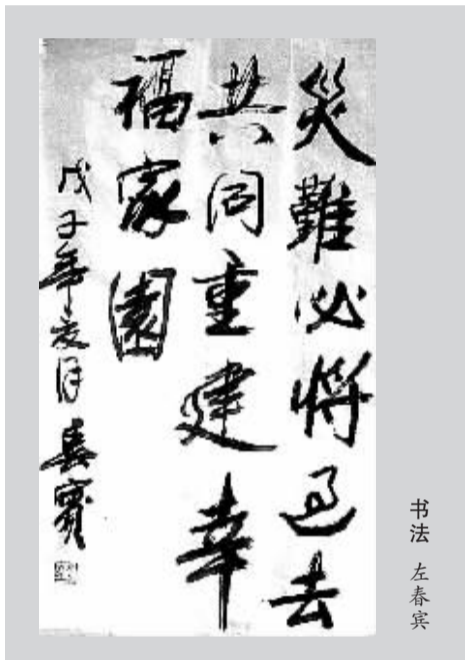 災難必將過去
共同重建幸
福家園
戊子年夏月春賓
书法 左春宾